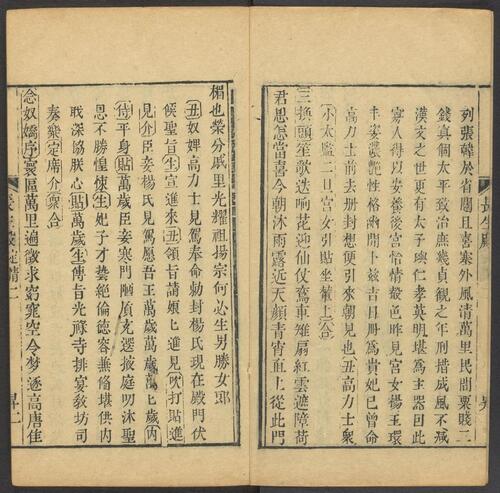 列張韓於省闥且喜塞外風清萬里民間粟賤三
錢真個太平致治庶幾貞觀之年刑措成風不減
漢文之世更有太子璵仁孝英明堪爲主器因此
寡人得以安養後宮寄情聲色昨見宮女楊玉環
丰姿穠艷性格幽閒卜兹吉日冊爲貴妃已曾命
高力士前去册封想便引來朝見也丑高力士衆
小太監二旦宮女引貼坐輦上合
三換頭笙歌迭响花迎仙仗鸞車雉扇紅雲遮障荷
君恩怎當喜今朝沐雨露近天顏青宵直上從此門
楣也榮分戚里光耀祖揚宗何必生男勝女郎
丑奴婢高力士見駕奉命勅封楊氏現在殿門伏
候聖旨生宣進來丑領旨請娘匕進見吹打貼進
見介臣妾楊氏見駕愿吾王萬歲萬歲萬匕歲內
侍平身貼萬歲臣妾寒門陋質充選掖庭叨沐聖
恩不勝惶悚生妃子才藝絕倫德容兼備堪供內
職深協朕心貼萬歲生傳旨光祿寺排宴敎坊司
奏樂定席介衆合
念奴嬌序寰區萬里遍徵求窈窕空令夢逐高唐佳
長生殿定情二